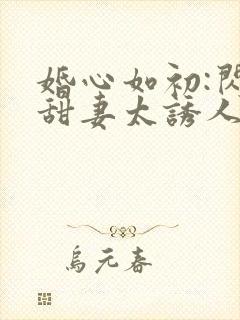 婚心如初:閃
甜妻太誘人
烏元春